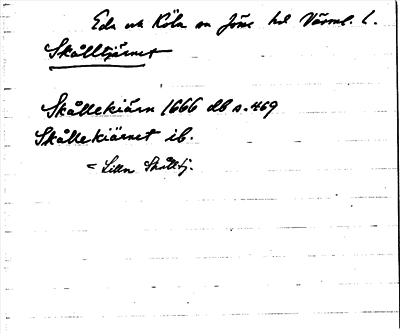 Eda och Köla sn Jösse hd Värml. l.
Skålltjärnet
Skållekiärn 1666 db s. 469
Skållekiärnet ib.
= Lilla Skålltj.